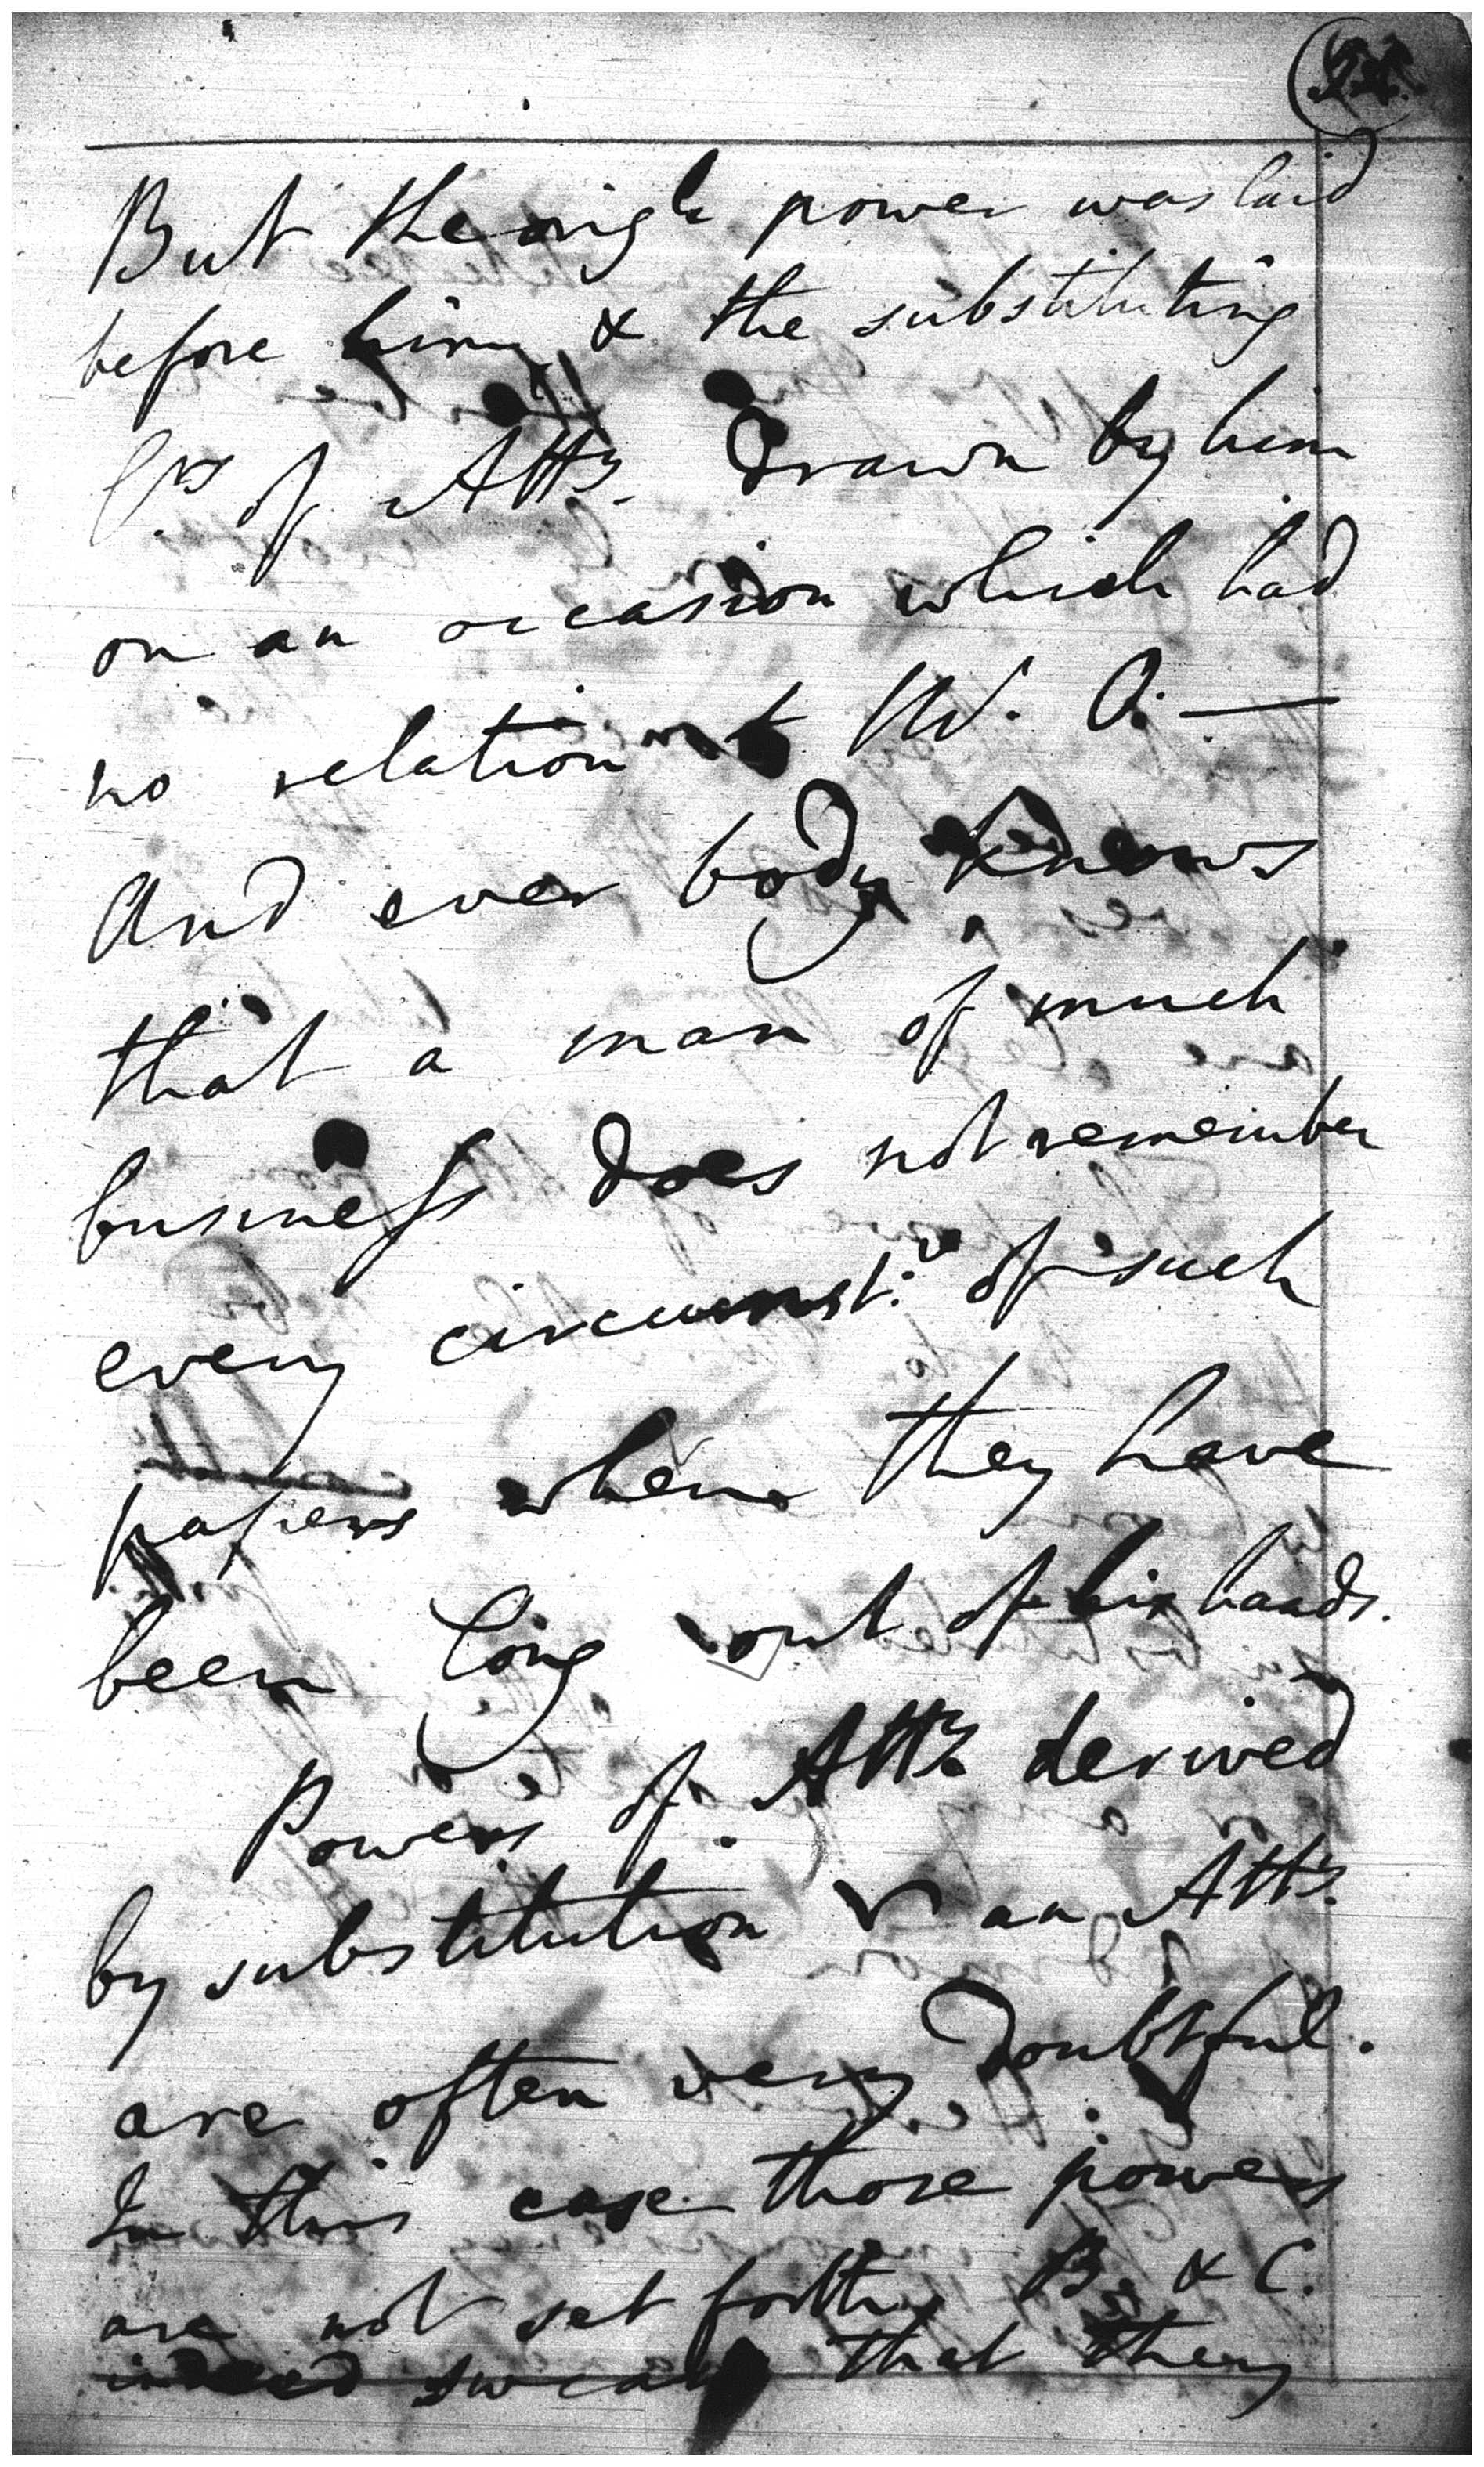 But the orig.l power was laid
before him, & the substituting
P.rs of Att.y drawn by him
on an occasion which had
no relation to W. O. —
And ever body knows
that a man of much
business does not remember
every circumst.e of such
papers when they have
been long out of his hands.
Powers of Att.y derived
by substitution an Att.y
are often very doubtful.
In this case those powers
are not set forth, B. & C.
indeed swear that they